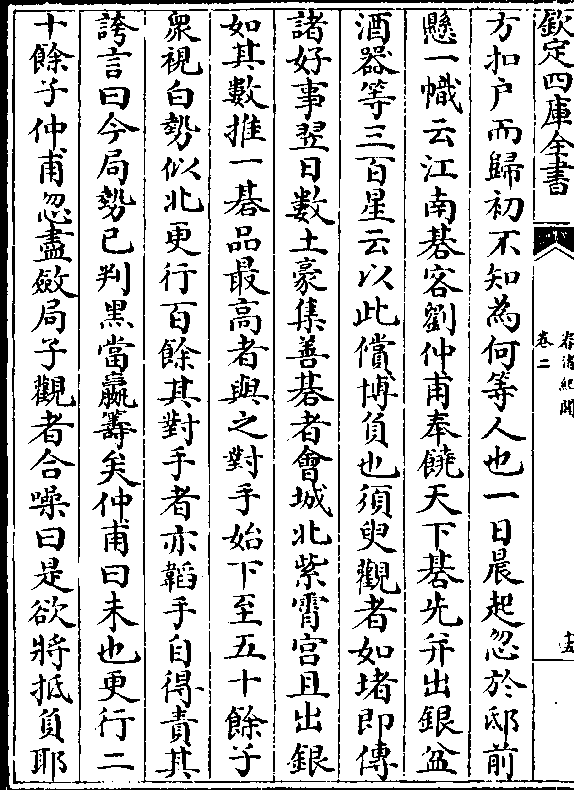 欽定四庫全書
春渚紀聞
卷二
十五
方扣户而歸初不知為何等人也一日晨起忽於邸前
懸一幟云江南碁客劉仲甫奉饒天下碁先并出銀盆
酒器等三百星云以此償博負也須臾觀者如堵即傳
諸好事翌日數土豪集善碁者會城北紫霄宫且出銀
如其數推一碁品最高者與之對手始下至五十餘子
衆視白勢似北更行百餘其對手者亦韜手自得責其
誇言曰今局勢已判黑當贏籌矣仲甫曰未也更行二
十餘子仲甫忽盡斂局子觀者合噪曰是欲將抵負耶